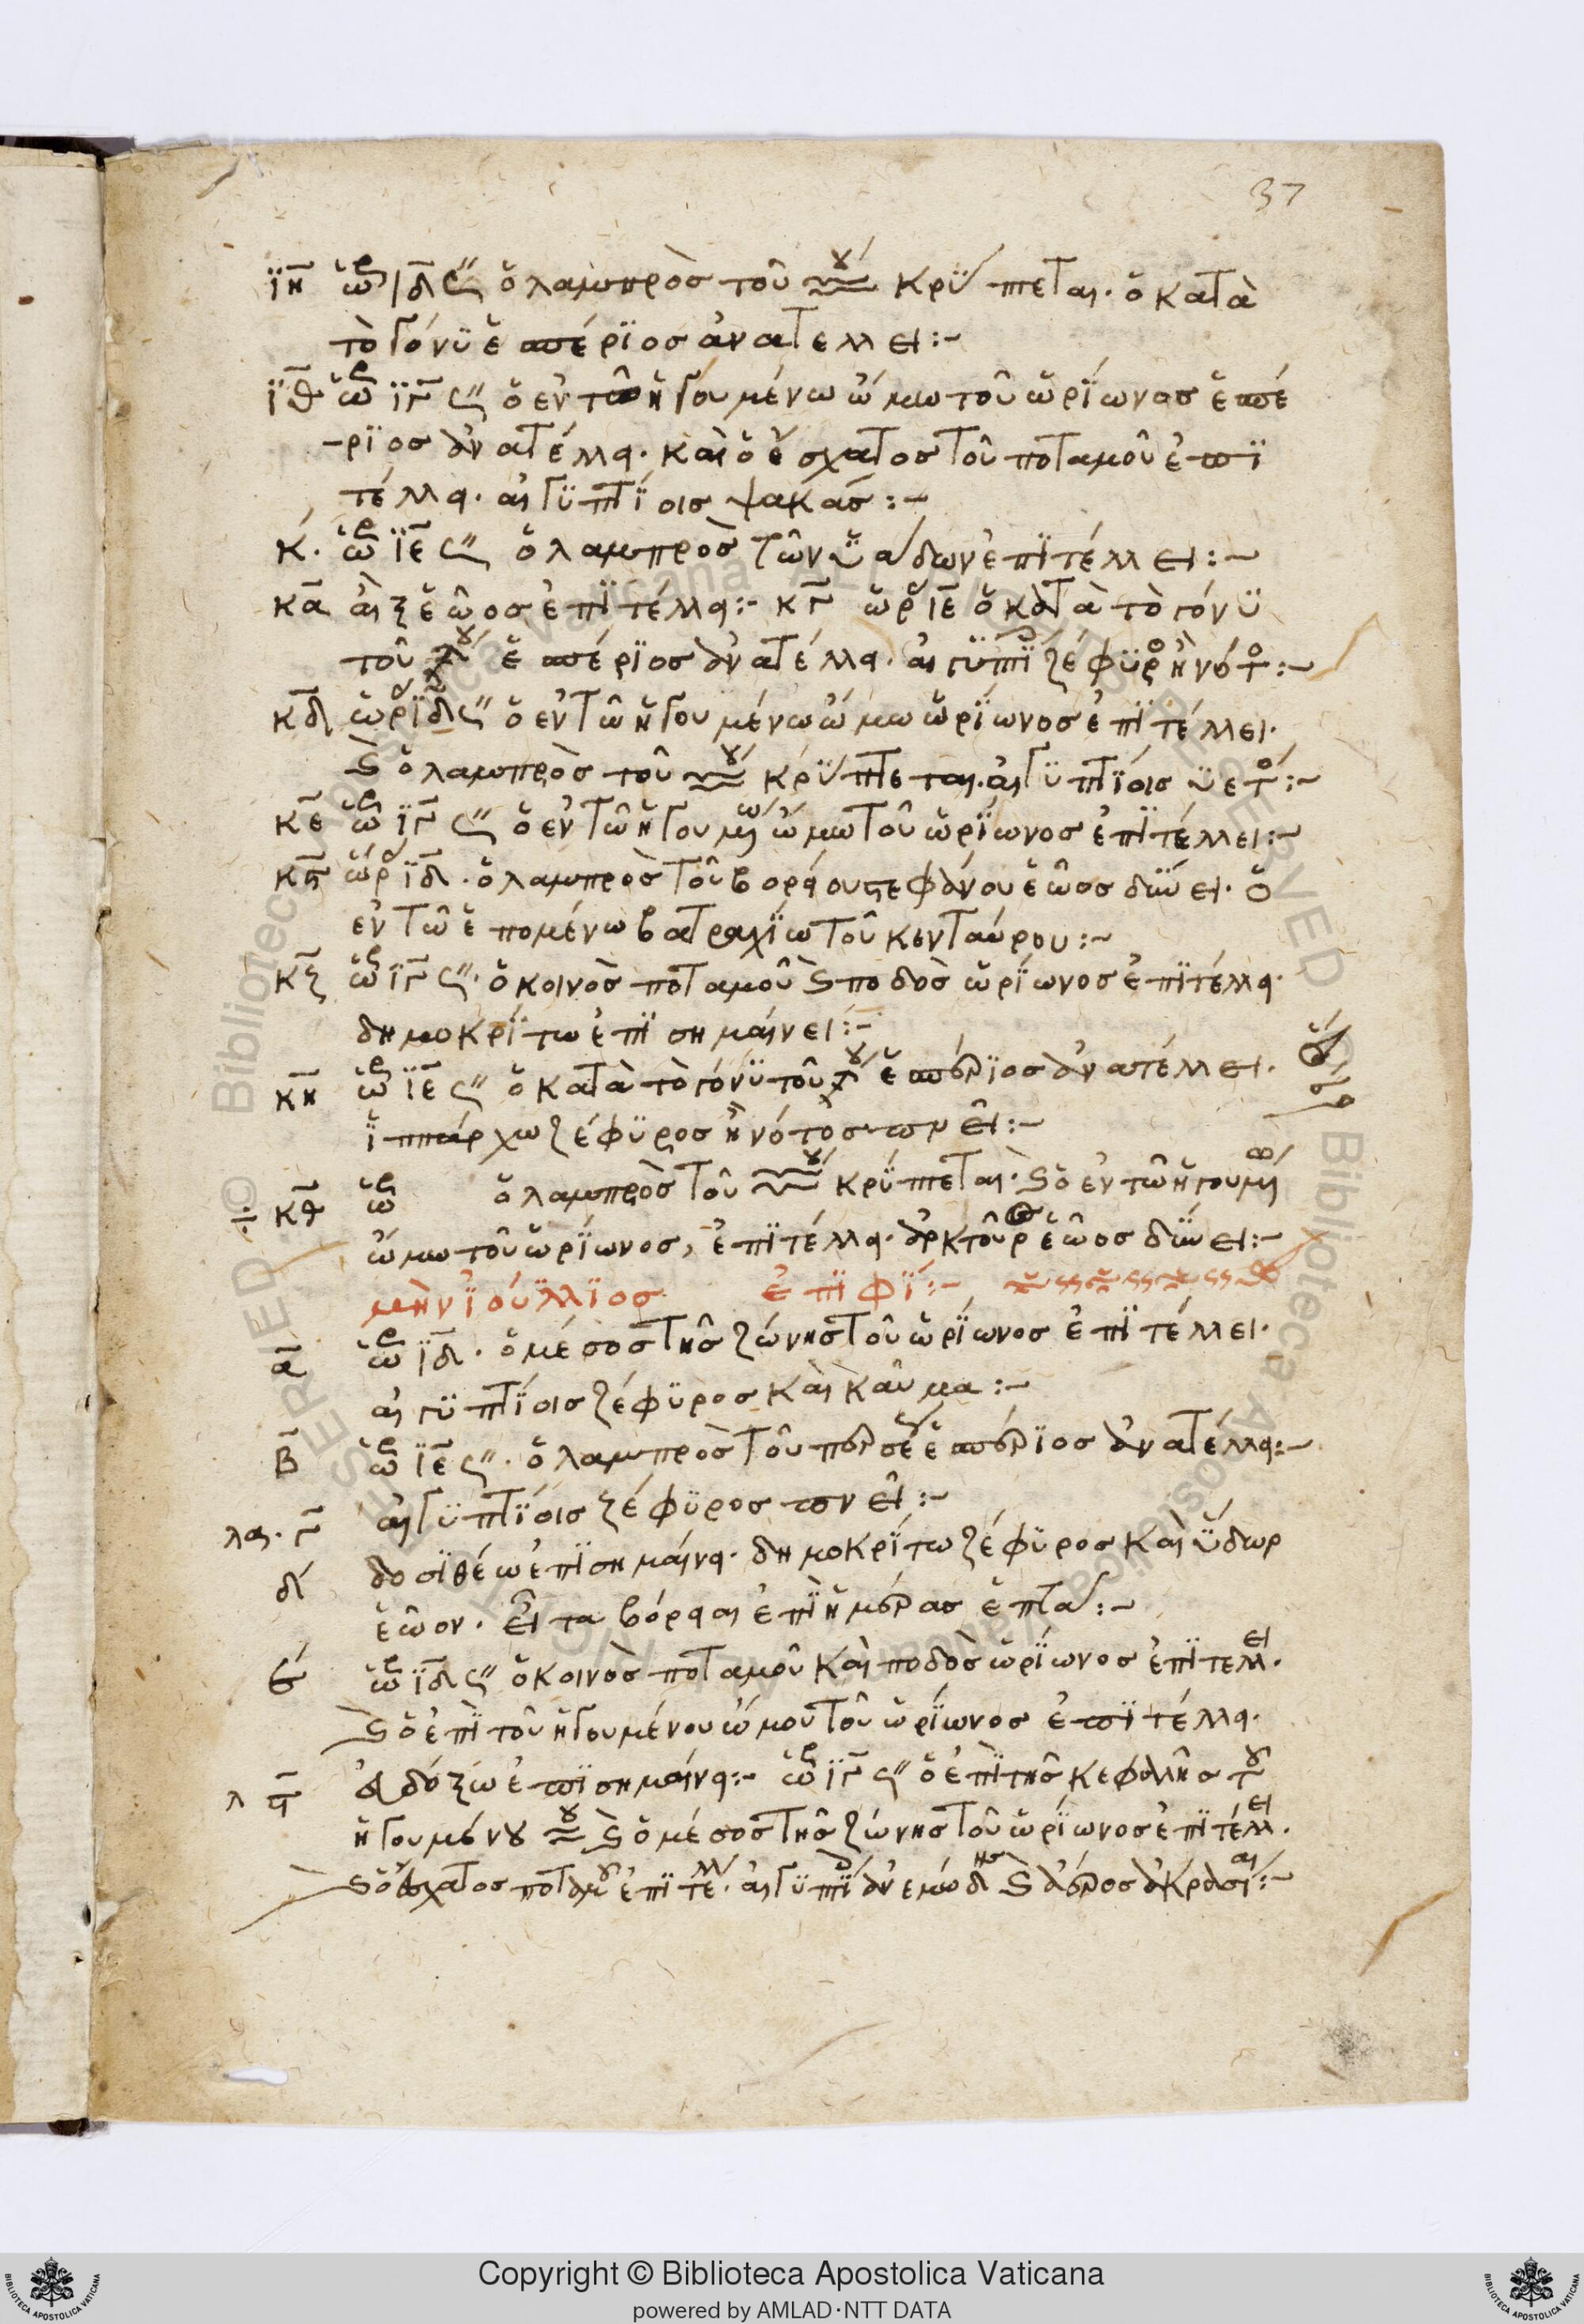 37
ιη ὥρ ιδ ς'' ὁ λαμπρὸσ τοῦ ♒ κρύπτεται. ὁ κατὰ
τὸ γόνυ ἑσπέριοσ ἀνατέλλει:-
ιθ ὥρ ιγ ς'' ὁ εν τῶ ἡγουμένω ὤμω τοῦ ὠρίωνοσ ἑσπέ
-ριοσ ἀνατέλλει. καὶ ὁ ἔσχατοσ τοῦ ποταμοῦ ἐπι
τέλλει. αἰγυπτίοισ ψακάσ:-
κ. ὥρ ιε ς'' ὁ λαμπρὸσ τῶν ὑάδων ἐπιτέλλει:-
κα αἲξ ἑῶοσ ἐπιτέλλει:- κγ ὥρ ιε ὁ κατὰ τὸ γόνυ
τοῦ ἑσπέριοσ ἀνατέλλει. αἰγυπτι ζέφυρο ἢ νότο:-
κδ ὥρ ιδ ς'' ὁ εν τῶ ἡγουμένω ὤμω ὠρίωνοσ ἐπιτέλλει.
ϛ ὁ λαμπρὸσ τοῦ ♒ κρύπτεται. αἰγυπτίοισ ὑετο:-
κε ὥρ ιγ ς'' ὁ ἐν τῶ ἡγουμεω ὤμω τοῦ ὠρίωνοσ ἐπιτέλλει:-
κϛ ὥρ ιδ. ὁ λαμπρὸσ τοῦ βορείου στεφάνου ἑῶοσ δύνει. ὁ
εν τῶ ἑπομένω βατραχίω τοῦ κενταύρου:-
κζ ὥρ ιγ ς''. ὁ κοινὸσ ποταμοῦ ϛ ποδὸσ ὠρίωνοσ ἐπιτέλλει.
δημοκρίτω ἐπισημαίνει:-
κη ὥρ ιε ς'' ὁ κατὰ τὸ γόνυ τοῦ ἑσπέριοσ ἀνατέλλει.
ἱππάρχω ζέφυροσ ἢ νότοσ πνεῖ:-
κθ ὥρ ὁ λαμπρὸσ τοῦ ♒ κρύπτεται. ϛ ὁ εν τῶ ἡγουμεω
ὤμω τοῦ ὠρίωνοσ, ἐπιτέλλει. ἀρκτοῦροσ ἑῶοσ δύνει:-
μὴν ἰούλλιοσ ἐπιφί:-
α ὥρ ιδ. ὁ μέσοσ τῆσ ζώνησ τοῦ ὠρίωνοσ ἐπιτέλλει.
αἰγυπτίοισ ζέφυροσ καὶ καῦμα:-
β ὥρ ιε ς''. ὁ λαμπρὸσ τοῦ περσέου ἑσπέριοσ ἀνατέλλει:-
γ αἰγυπτίοισ ζέφυροσ πνεῖ:-
δ δοσιθέω ἐπισημαίνει. δημοκρίτω ζέφυροσ καὶ ὕδωρ
ἑῶον. εἶτα βόρεαι ἐπὶ ἡμέρασ ἑπτα:-
ε ὥρ ιδ ς'' ὁ κοινὸσ ποταμοῦ καὶ ποδὸσ ὠρίωνοσ ἐπιτελλει.
ϛ ὁ ἐπὶ τοῦ ἡγουμένου ὤμου τοῦ ὠρίωνοσ ἐπιτέλλει.
ϛ εὐδόξω ἐπισημαίνει:- ὥρ ιγ ς'' ὁ ἐπὶ τῆσ κεφαλῆσ τοῦ
ἡγουμένου ϛ ὁ μέσοσ τῆσ ζώνησ τοῦ ὠρίωνοσ ἐπιτέλλει.
ϛ ὁ ἔσχατοσ ποταμοῦ ἐπιτέλλ. αἰγυπτι ἀνεμώδησ ϛ ἀέροσ ἀκρασίαι:-